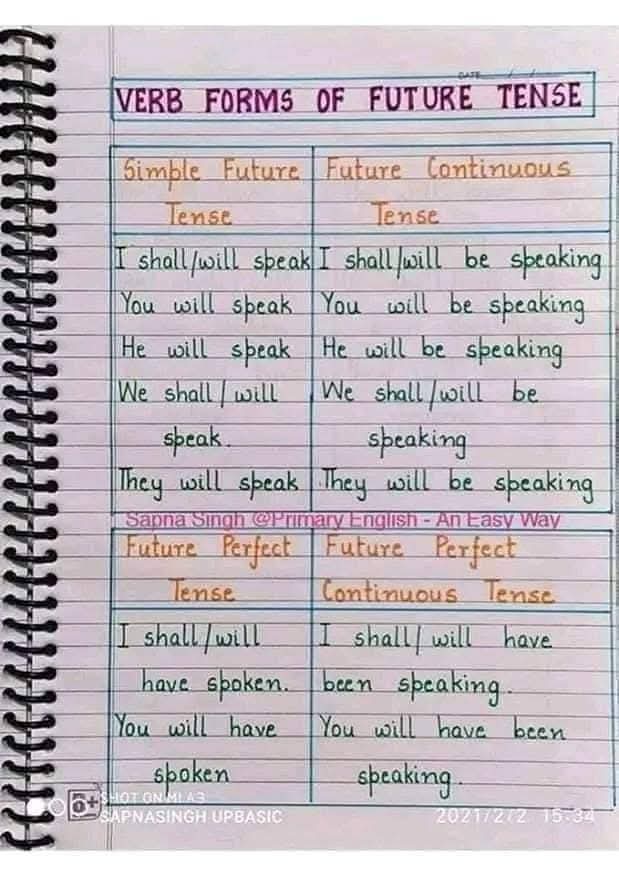 DATE / /
VERB FORMS OF FUTURE TENSE
Simple Future
Tense
I shall/will speak
You will speak
He will speak
We shall/will
speak.
They will speak
Future Continuous
Tense
I shall/will be speaking
You will be speaking
He will be speaking
We shall/will be
speaking
They will be speaking
Sapna Singh @Primary English - An Easy Way
Future Perfect
Tense
I shall/will
have spoken.
You will have
spoken
Future Perfect
Continuous Tense
I shall/will have
been speaking.
You will have been
speaking.
SHOT ON MI A3
SAPNASINGH UPBASIC
2021/2/2 15:34